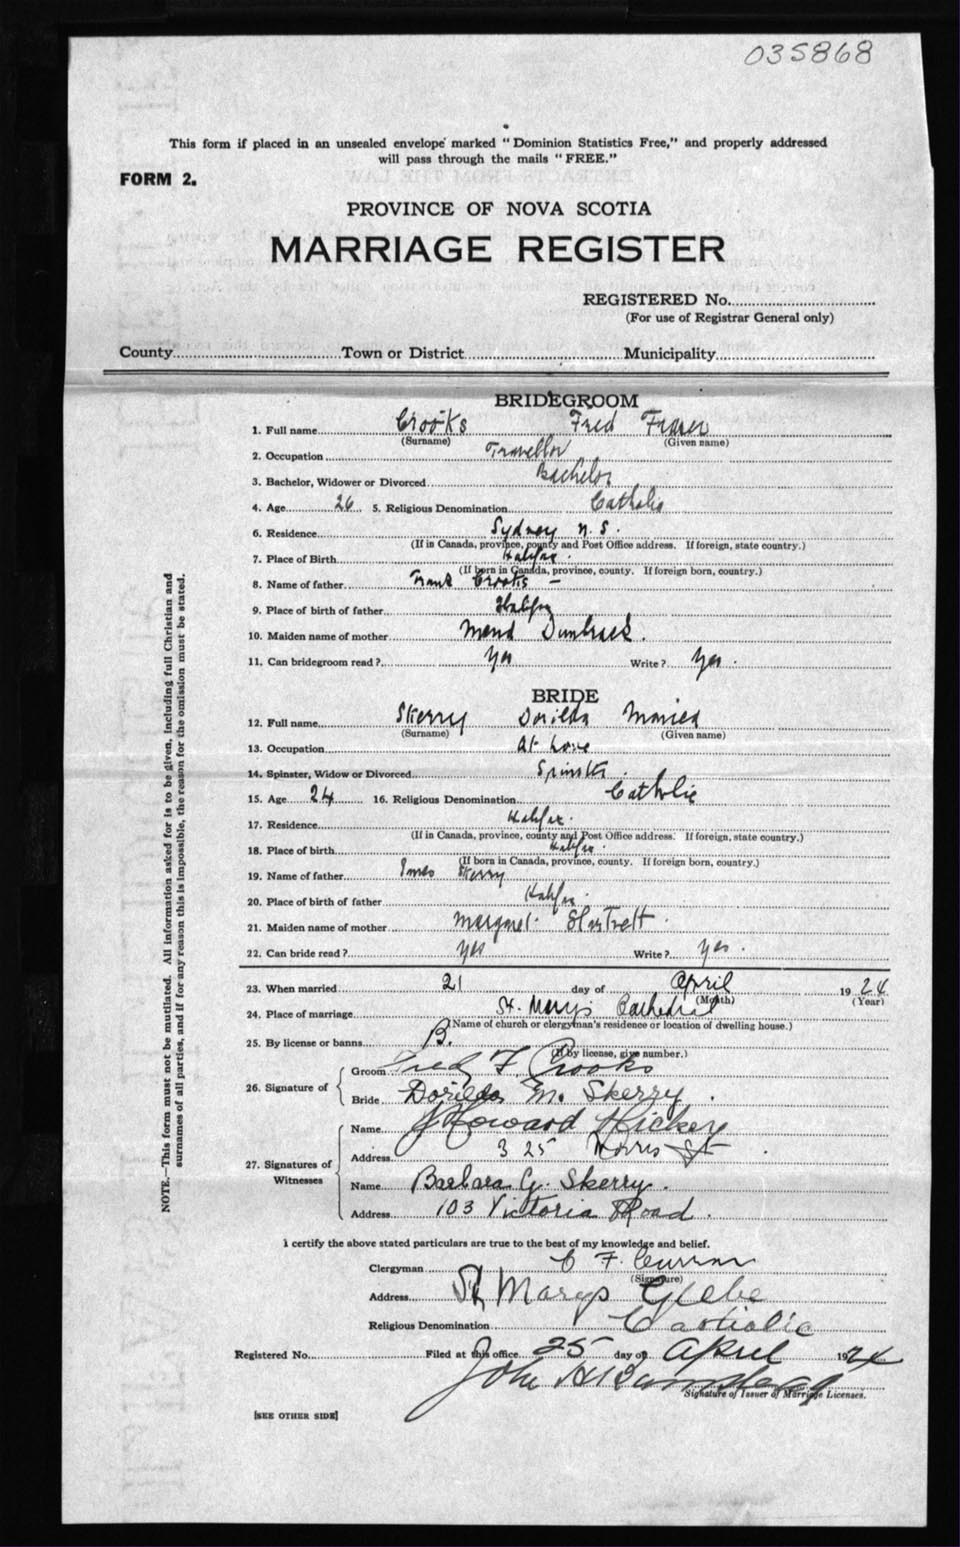 035868
This form if placed in an unsealed envelope marked "Dominion Statistics Free," and properly addressed
will pass through the mails "FREE."
FORM 2.
PROVINCE OF NOVA SCOTIA
MARRIAGE REGISTER
REGISTERED No.
(For use of Registrar General only)
County Town or District Municipality
BRIDEGROOM
1. Full name Crooks Fred Fraser
(Surname) (Given name)
2. Occupation Traveller
3. Bachelor, Widower or Divorced Bachelor
4. Age 26 5. Religious Denomination Catholic
6. Residence Sydney N.S.
(If in Canada, province, county and Post Office address. If foreign, state country.)
7. Place of Birth Halifax.
(If born in Canada, province, county. If foreign born, country.)
8. Name of father Frank Crooks -
9. Place of birth of father Halifax
10. Maiden name of mother
11. Can bridegroom read? Yes Write? Yes.
BRIDE
12. Full name Skerry Dorilda
(Surname) (Given name)
13. Occupation At home
14. Spinster, Widow or Divorced Spinster.
15. Age 24 16. Religious Denomination Catholic
17. Residence Halifax.
(If in Canada, province, county and Post Office address. If foreign, state country.)
18. Place of birth Halifax.
(If born in Canada, province, county. If foreign born, country.)
19. Name of father Skerry
20. Place of birth of father Halifax.
21. Maiden name of mother Margaret
22. Can bride read? Yes Write? Yes.
23. When married 21 day of April 1924
(Month) (Year)
24. Place of marriage St. Mary's Cathedral
(Name of church or clergyman's residence or location of dwelling house.)
25. By license or banns B.
(If by license, give number.)
26. Signature of Groom Fred F. Crooks
Bride Dorilda M. Skerry.
27. Signatures of Witnesses Name J Howard Hickey
Address 325 Morris St
Name Barbara G. Skerry.
Address 103 Victoria Road.
I certify the above stated particulars are true to the best of my knowledge and belief.
Clergyman C F. Curran
(Signature)
Address St Marys Glebe
Religious Denomination Catholic
Registered No. Filed at this office 25 day of April 1924
John H
Signature of Issuer of Marriage Licenses.
[SEE OTHER SIDE]
NOTE.—This form must not be mutilated. All information asked for is to be given, including full Christian and
surnames of all parties, and if for any reason this is impossible, the reason for the omission must be stated.